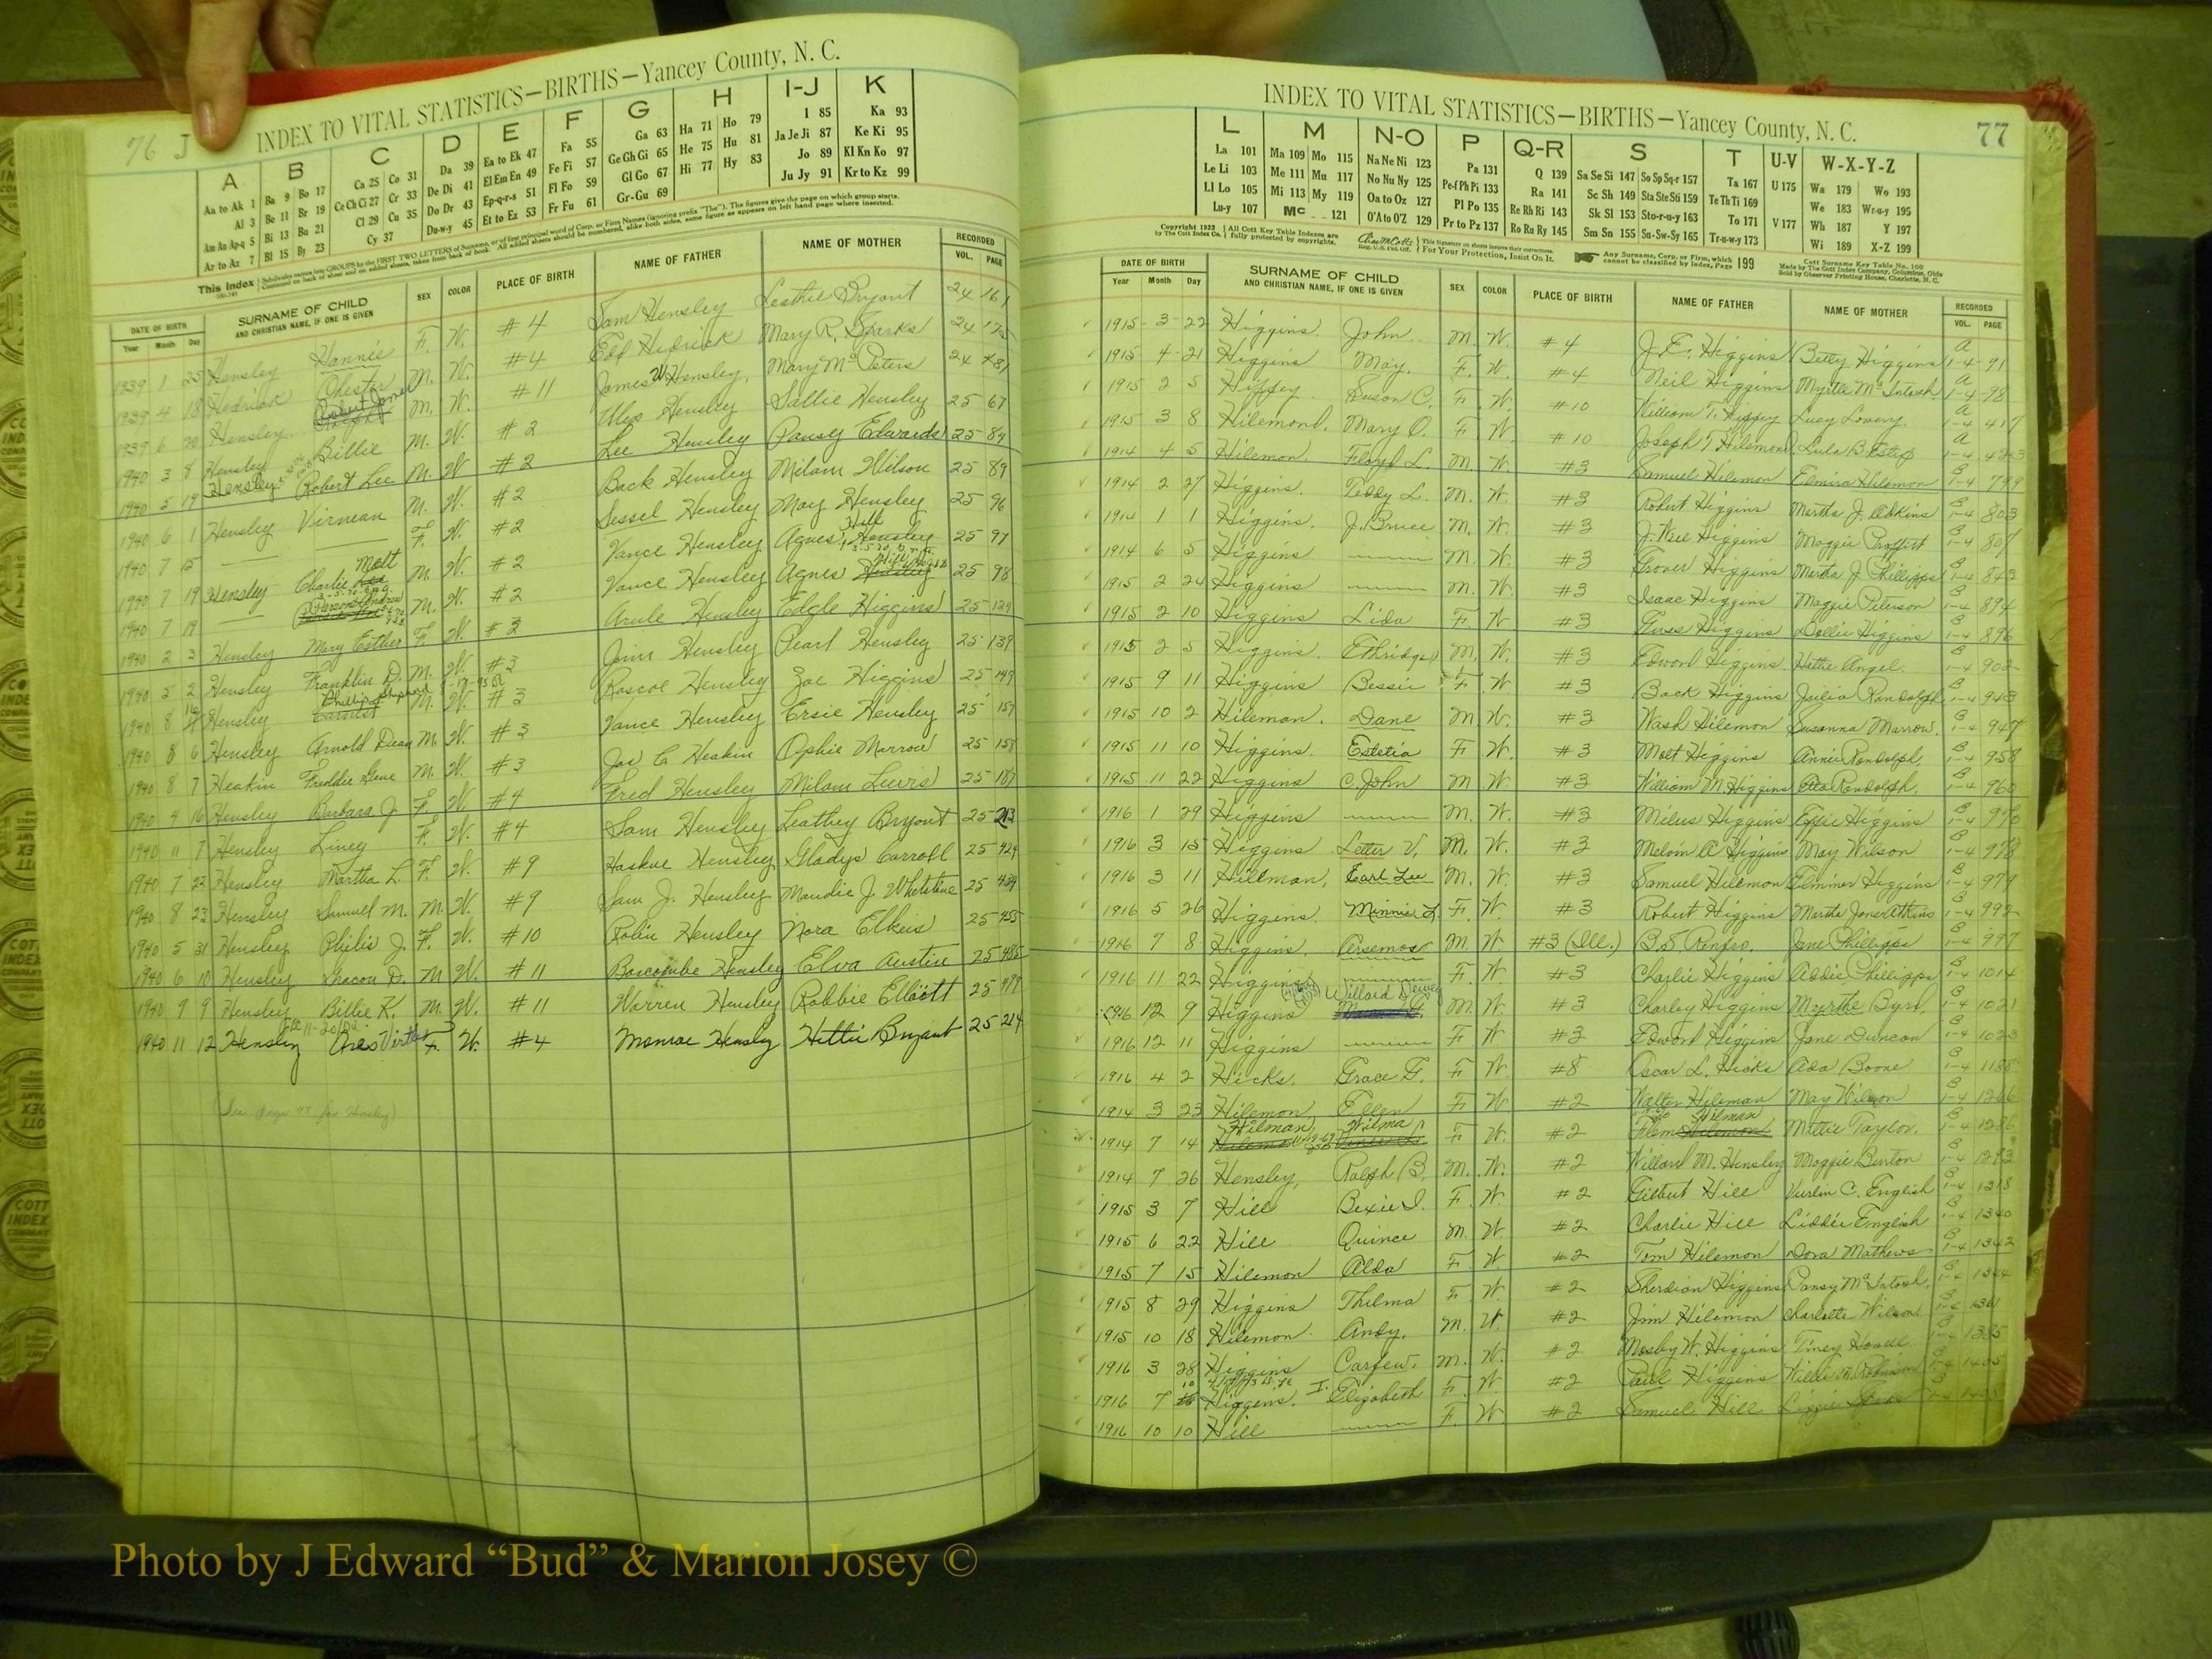 76 J
INDEX TO VITAL STATISTICS—BIRTHS—Yancey County, N. C.
A B C D E F G H I-J K
Aa to Ak 1 Ba 9 Bo 17 Ca 25 Co 31 Da 39 Ea to Ek 47 Fa 55 Ga 63 Ha 71 Ho 79 I 85 Ka 93
Al 3 Be 11 Br 19 Ce Ch Ci 27 Cr 33 De Di 41 El Em En 49 Fe Fi 57 Ge Gh Gi 65 He 75 Hu 81 Ja Je Ji 87 Ke Ki 95
Am An Ap-q 5 Bi 13 Bu 21 Cl 29 Cu 35 Do Dr 43 Ep-q-r-s 51 Fl Fo 59 Gl Go 67 Hi 77 Hy 83 Jo 89 Kl Kn Ko 97
Ar to Az 7 Bl 15 By 23 Cy 37 Du-w-y 45 Et to Ez 53 Fr Fu 61 Gr-Gu 69 Ju Jy 91 Kr to Kz 99
This Index Subdivides names into GROUPS by the FIRST TWO LETTERS of Surname, or of first principal word of Corp. or Firm Names (ignoring prefix "The"). The figures give the page on which group starts.
Continued on back of sheet and on added sheets, taken from back of book. All added sheets should be numbered, alike both sides, same figure as appears on left hand page where inserted.
DATE OF BIRTH SURNAME OF CHILD SEX COLOR PLACE OF BIRTH NAME OF FATHER NAME OF MOTHER RECORDED
Year Month Day AND CHRISTIAN NAME, IF ONE IS GIVEN VOL. PAGE
1939 1 25 Hensley Hannie F. W. #4 Sam Hensley 24 161
1939 4 18 Hedrick Chester M. W. #4 Edd Hedrick Mary R. Sparks 24
1939 6 20 Hensley Robert James M. W. #11 James W Hensley, Mary Mc Peters 24
1940 3 8 Hensley Billie M. W. #2 Hensley Sallie Hensley 25 67
1940 5 19 Hensley Robert Lee M. W. #2 Lee Hensley Pansy Edwards 25 84
1940 6 1 Hensley Virnean M. W. #2 Back Hensley Milam Wilson 25 89
1940 7 15 F. W. #2 Sessel Hensley May Hensley 25 96
1940 7 19 Hensley Charlie Mott M. W. #2 Vance Hensley Agnes Hill 25 97
1940 7 19 M. W. #2 Vance Hensley Agnes 25 98
1940 2 3 Hensley Mary Esther F. W. #3 Hensley Edgle Higgins 25 124
1940 5 2 Hensley Franklin D. M. W. #3 Jim Hensley Pearl Hensley 25 139
1940 8 Hensley Phillip M. W. #3 Roscoe Hensley Zoe Higgins 25 149
1940 8 6 Hensley Arnold Dean M. W. #3 Vance Hensley Ersie Hensley 25 157
1940 8 7 Heakin Freddie Gene M. W. #3 Jas C Heakin Ophie Marrow 25 158
1940 4 16 Hensley Barbara J. F. W. #4 Fred Hensley Milam Lewis 25 187
1940 11 7 Hensley Liney F. W. #4 Sam Hensley Leathey Bryant 25 213
1940 7 23 Hensley Martha L. F. W. #9 Haskue Hensley Gladys Carroll 25 424
1940 8 23 Hensley Samuel M. M. W. #9 Sam J. Hensley Maudie J. Whetstine 25 434
1940 5 31 Hensley Philis J. F. W. #10 Robin Hensley Nora Elkins 25 455
1940 6 10 Hensley D. M W. #11 Boscombe Hensley Elva Austin 25 485
1940 9 9 Hensley Billie K. M. W. #11 Warren Hensley Robbie Elliott 25
1940 11 12 Hensley F. W. #4 Monroe Hensley Hettie Bryant 25 214
INDEX TO VITAL STATISTICS—BIRTHS—Yancey County, N. C. 77
L M N-O P Q-R S T U-V W-X-Y-Z
La 101 Ma 109 Mo 115 Na Ne Ni 123 Pa 131 Q 139 Sa Se Si 147 So Sp Sq-r 157 Ta 167 U 175 Wa 179 Wo 193
Le Li 103 Me 111 Mu 117 No Nu Ny 125 Pe-f Ph Pi 133 Ra 141 Sc Sh 149 Sta Ste Sti 159 Te Th Ti 169 We 183 Wr-u-y 195
Ll Lo 105 Mi 113 My 119 Oa to Oz 127 Pl Po 135 Re Rh Ri 143 Sk Sl 153 Sto-r-u-y 163 To 171 V 177 Wh 187 Y 197
Lu-y 107 Mc 121 O'A to O'Z 129 Pr to Pz 137 Ro Ru Ry 145 Sm Sn 155 Su-Sw-Sy 165 Tr-u-w-y 173 Wi 189 X-Z 199
Copyright 1932 by The Cott Index Co. All Cott Key Table Indexes are fully protected by copyrights. This signature on sheets insures their correctness. For Your Protection, Insist On It. Any Surname, Corp. or Firm, which cannot be classified by Index, Page 199 Cott Surname Key Table No. 100
Made by The Cott Index Company, Columbus, Ohio
Sold by Observer Printing House, Charlotte, N. C.
DATE OF BIRTH SURNAME OF CHILD SEX COLOR PLACE OF BIRTH NAME OF FATHER NAME OF MOTHER RECORDED
Year Month Day AND CHRISTIAN NAME, IF ONE IS GIVEN VOL. PAGE
1915 3 22 Higgins John. M. W. #4 J. E. Higgins Betty Higgins A 1-4 91
1915 4 21 Higgins May. F. W. #4 Neil Higgins Myrtle McIntosh A 1-4 98
1915 2 5 Hippey Susan C. F. W. #10 William T. Hippey Lucy Lovery. A 1-4 417
1915 3 8 Hilemond. Mary O. F. W. #10 Joseph T Hilemond Lula B. Estep A 1-4 423
1914 4 5 Hilemon. Floyd L. M. W. #3 Samuel Hilemon Elmira Hilemon B 1-4 799
1914 2 27 Higgins. Teddy L. M. W. #3 Robert Higgins Martha J. Adkins B 1-4 803
1914 1 1 Higgins. J. Bruce M. W. #3 J. Weil Higgins Maggie Proffitt B 1-4 807
1914 6 5 Higgins M. W. #3 Grover Higgins Martha J Phillipps B 1-4 843
1915 2 24 Higgins M. W. #3 Isaac Higgins Maggie Peterson B 1-4 894
1915 2 10 Higgins Lida F W #3 Gus Higgins Dollie Higgins B 1-4 896
1915 2 5 Higgins. Ethridge M. W. #3 Edward Higgins Hettie Angel. B 1-4 902
1915 9 11 Higgins Bessie F. W #3 Back Higgins Julia Randolph B 1-4 943
1915 10 2 Hileman. Dane M W. #3 Wash Hilemon Susanna Marrow. B 1-4 947
1915 11 10 Higgins. Estetia F W. #3 Molt Higgins Annie Randolph. B 1-4 958
1915 11 22 Higgins C. John M W. #3 William M. Higgins Etta Randolph. B 1-4 960
1916 1 29 Higgins M. W. #3 Milus Higgins Effie Higgins B 1-4 976
1916 3 15 Higgins Letter V. M. W. #3 Melvin A Higgins May Wilson B 1-4 978
1916 3 11 Hillman, Earl Lee M. W. #3 Samuel Hilemon Elminer Higgins B 1-4 979
1916 5 26 Higgins. Minnie L. F. W. #3 Robert Higgins Martha Jane Atkins B 1-4 992
1916 7 8 Higgins. Arsemos M W #3 (Ill.) B. S Renfro. Jane Phillipps B 1-4 997
1916 11 22 Higgins F. W. #3 Charlie Higgins Addie Phillipps B 1-4 1014
1916 12 9 Higgins Willard Dewey M. W. #3 Charley Higgins Myrthe Byrd, B 1-4 1021
1916 12 11 Higgins F W #3 Edward Higgins Jane Duncan B 1-4 1023
1916 4 2 Hicks. Grace F. F. W. #8 Oscar L. Hicks Ada Boone B 1-4 1185
1914 3 23 Hilemon Ellen F W #2 Walter Hileman May Wilson B 1-4 1266
1914 7 14 Hilman, Wilma F. W. #2 Hilman Mittie Taylor. B 1-4 1286
1914 7 26 Hensley, Ralph B. M. W. #2 Willard M. Hensley Maggie Benton B 1-4 1293
1915 3 7 Hill Bixie I. F. W. #2 Gilbert Hill Verlin C. English B 1-4 1318
1915 6 22 Hill Quince M W. #2 Charlie Hill Liddie English B 1-4 1340
1915 7 15 Hilemon Alda F. W. #2 Tom Hilemon Dora Mathews B 1-4 1342
1915 8 29 Higgins Thelma F. W. #2 Sherdian Higgins Pansy McIntosh. B 1-4 1344
1915 10 18 Hilemon. Andy. M. W. #2 Jim Hilemon Charlotte Wilson B 1-4 1361
1916 3 28 Higgins Carfew. M. W. #2 Mosby W. Higgins Tiney Howell. B 1-4 1385
1916 7 10 Higgins. I. Elizabeth F. W #2 Paul Higgins Willie M. Robinson B 1-4 1405
1916 10 10 Hill F. W #2 Samuel Hill Lizzie 1-4
Photo by J Edward “Bud” & Marion Josey ©